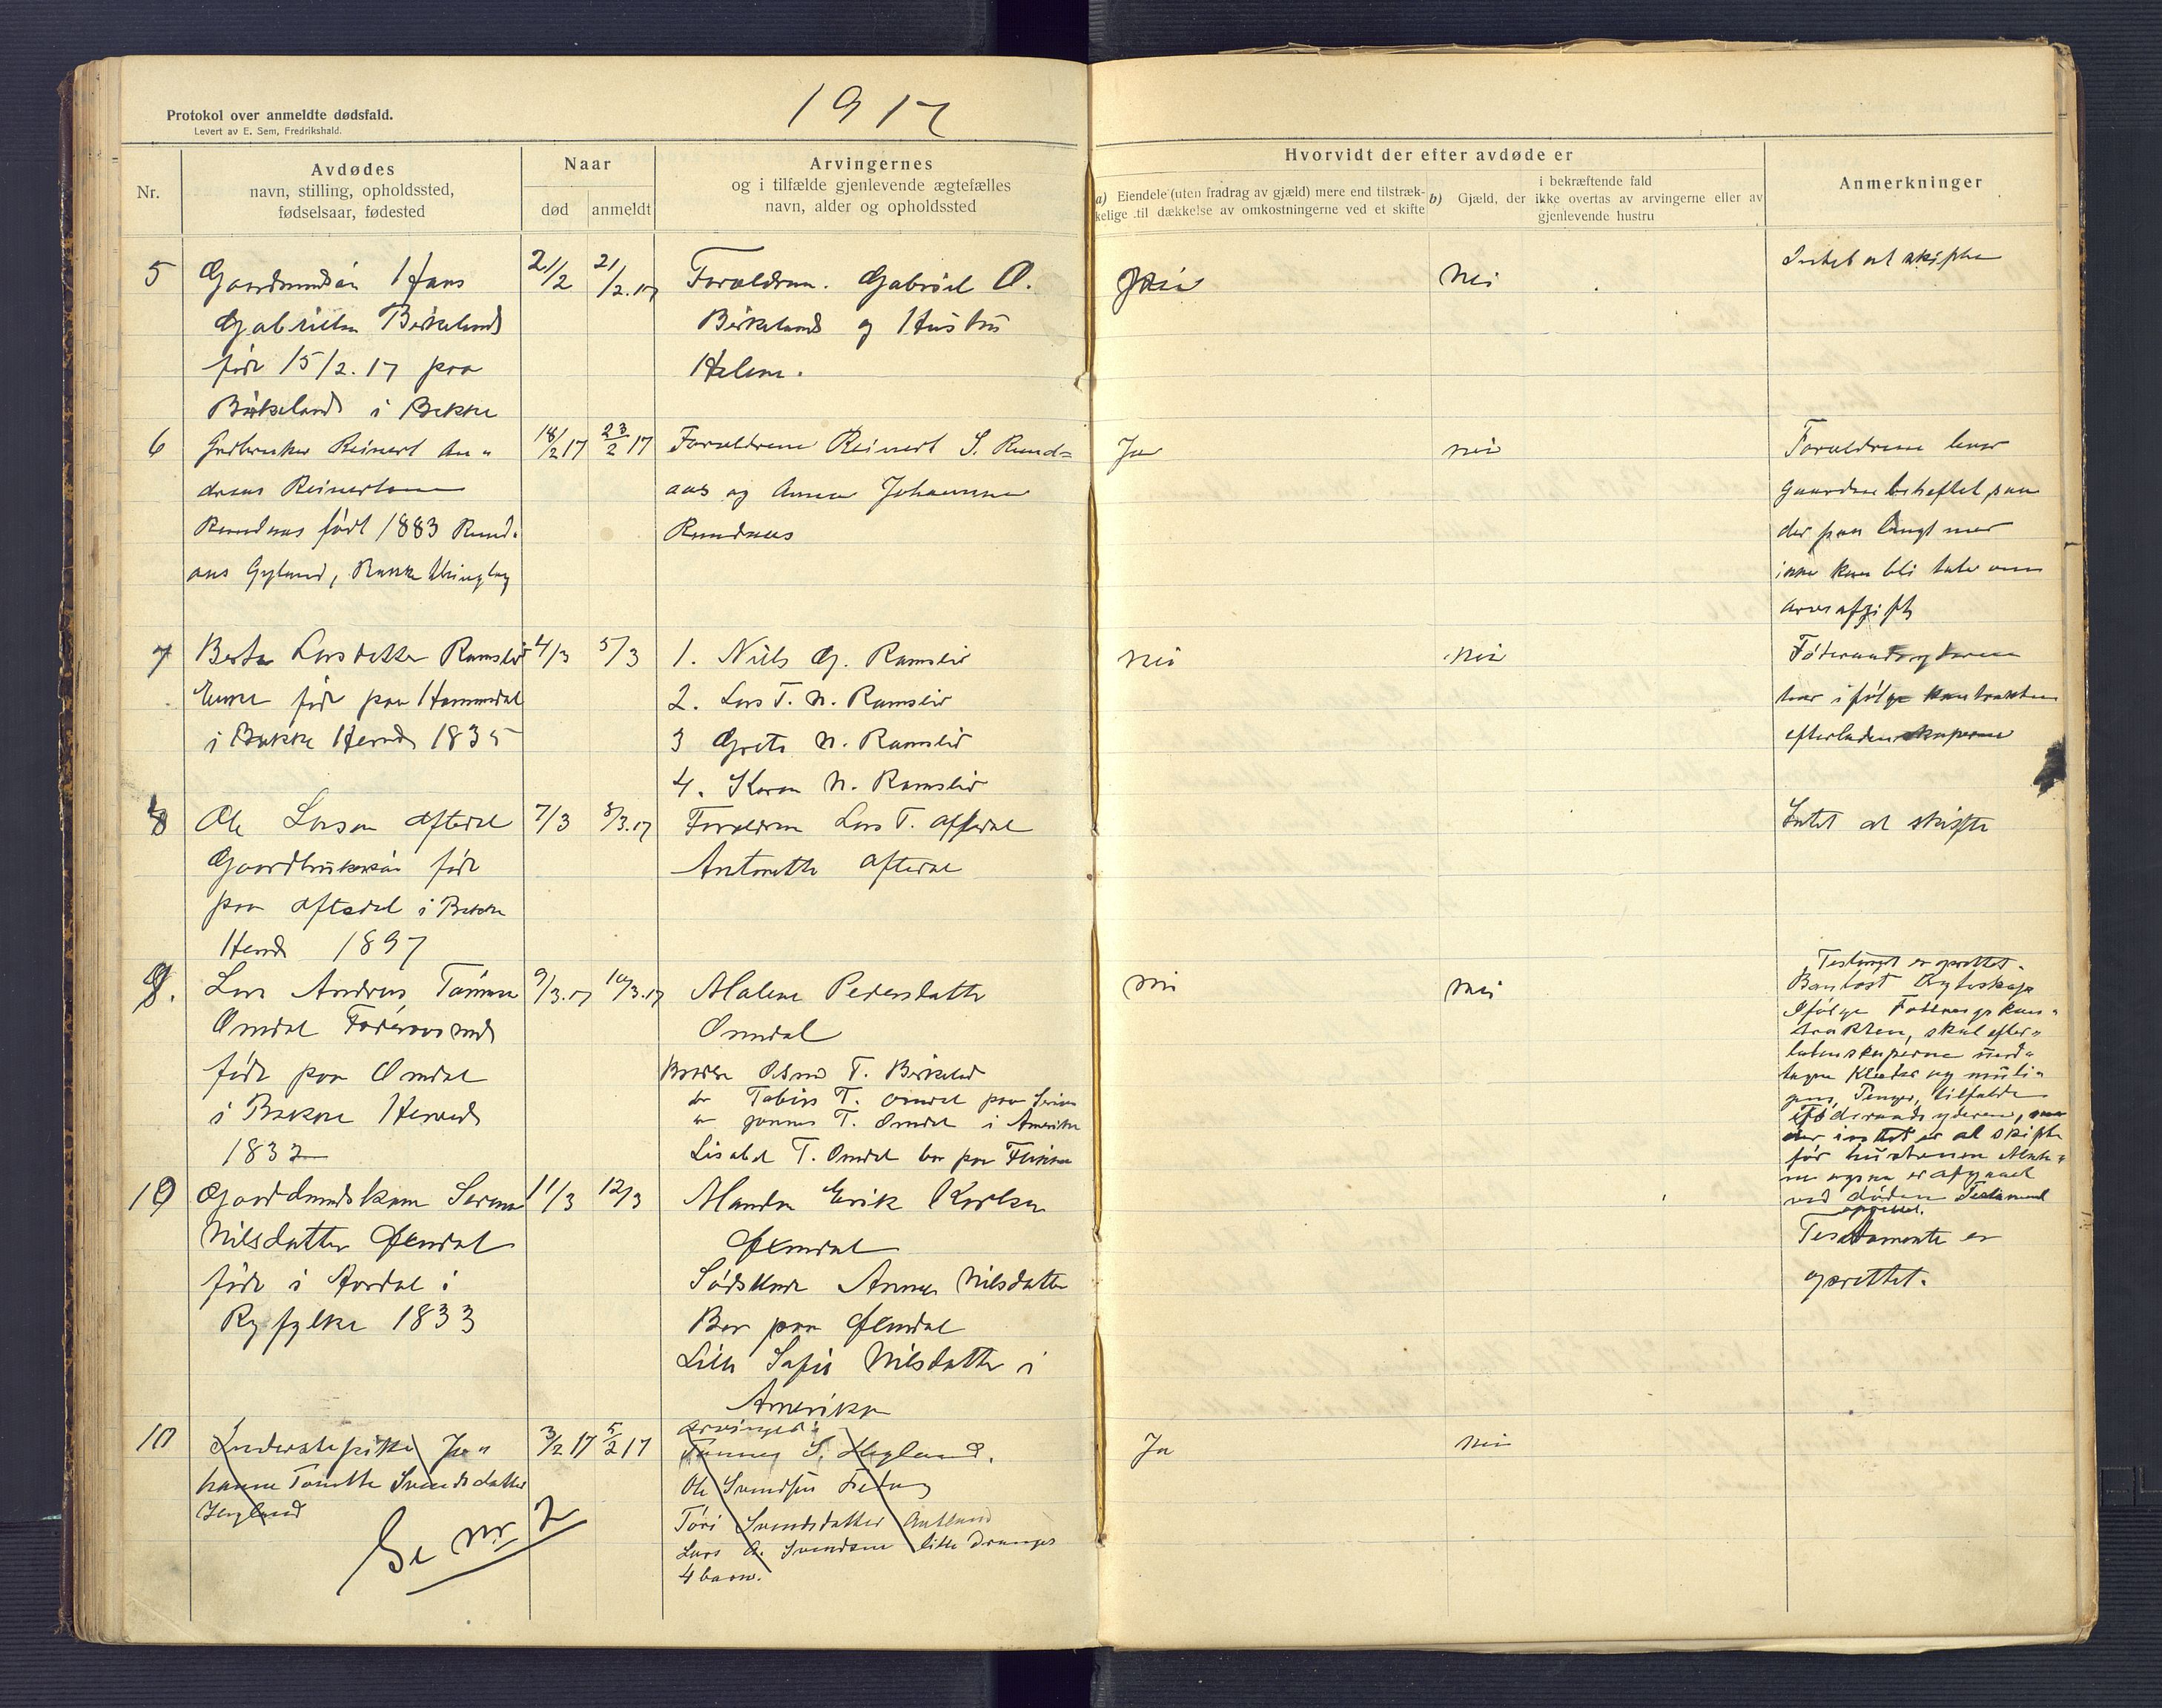 1917
Protokol over anmeldte dødsfald.
Levert av E. Sem, Fredrikshald.
Nr.
Avdødes
navn, stilling, opholdssted,
fødselsaar, fødested
Naar
død
anmeldt
Arvingernes
og i tilfælde gjenlevende ægtefælles
navn, alder og opholdssted
Hvorvidt der efter avdøde er
a) Eiendele (uten fradrag av gjæld) mere end tilstræk-
kelige til dækkelse av omkostningerne ved et skifte
b) Gjæld, der
i bekræftende fald
ikke overtas av arvingerne eller av
gjenlevende hustru
Anmerkninger
5
Gaardmandsøn Hans
Gabrielsen Birkeland
født 15/2.17 paa
Birkeland i Bakke
21/2
21/2.17
Forældrene. Gabriel O.
Birkeland og Hustru
Helene.
Nei
Intet at skifte
6
Gardbruker Reinert An„
dreas Reinertsen
Rundaas født 1883 Rund„
aas Gyland, Bakke
18/2 17
23/2 17
Forældrene Reinert S. Rund=
aas og Anna Johanna
Rundaas
Ja
nei
Forældrene har
gaarden beheftet saa
der paa langt nær
ikke kan bli tale om
arveafgift
7
Berta Larsdatter Ramslid
Enke født paa Hammedal
i Bakke Herred 1835
4/3
5/3
1. Nils G. Ramslid
2. Lars T. N. Ramslid
3 Grete N. Ramslid
4. Karen N. Ramslid
nei
nei
Føderaadsyderen
har ifølge kontrakten
efterladenskaperne
8
Ole Larsen Aftedal
Gaardbrukersøn født
paa Aftedal i Bakke
Herred 1897
7/3
8/3.17
Forældrene Lars T. Aftedal
Antonette Aftedal
Intet at skifte
9.
Lars Andreas Tønnesen
Omdal Føderaadsmand
født paa Omdal
i Bakke Herred
1832
9/3.17
10/3.17
Malene Pedersdatter
Omdal
Brødre Osmund T. Birkeland
do Tobias T. Omdal paa
do Jonnes T. Omdal i Amerika
Lisabet T. Omdal bor paa
nei
nei
Testament er oprettet.
Ifølge Føderaadskon„
trakten, skal efter„
ladenskaperne und„
tagen Klæder og muli„
gens Penger, tilfalde
Føderaadsyderen, saa
der intet er at skifte
for hustruen Male„
ne ogsaa er afgaaet
ved døden Testament
oprettet.
10
Gaardmandskone Serena
Nilsdatter Øendal
født i Aardal i
Ryfylke 1833
11/3
12/3
Manden Erik Karlsen
Øendal
Sødskende Anna Nilsdatter
Bor paa Øendal
Lille Sofie Nilsdatter i
Amerika
Testamente er
oprettet.
10
Inderstepike Jo„
hanne Tomette Svendsdatter
Hegland
Se nr 2
3/2 17
5/2 17
Arvinger:
Tønnes S. Hegland.
Ole Svendsen
Tøri Svendsdatter
Lars A. Svendsen lille Drange
4 barn.
Ja
nei